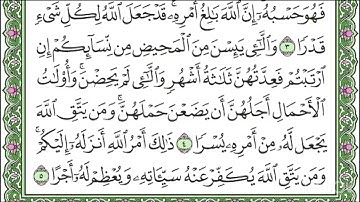 فَهُوَ حَسْبُهُۥٓ ۚ إِنَّ ٱللَّهَ بَـٰلِغُ أَمْرِهِۦ ۚ قَدْ جَعَلَ ٱللَّهُ لِكُلِّ شَىْءٍ
قَدْرًا ٣ وَٱلَّـٰٓـِٔى يَئِسْنَ مِنَ ٱلْمَحِيضِ مِن نِّسَآئِكُمْ إِنِ
ٱرْتَبْتُمْ فَعِدَّتُهُنَّ ثَلَـٰثَةُ أَشْهُرٍ وَٱلَّـٰٓـِٔى لَمْ يَحِضْنَ ۚ وَأُو۟لَـٰتُ
ٱلْأَحْمَالِ أَجَلُهُنَّ أَن يَضَعْنَ حَمْلَهُنَّ ۚ وَمَن يَتَّقِ ٱللَّهَ
يَجْعَل لَّهُۥ مِنْ أَمْرِهِۦ يُسْرًا ٤ ذَٰلِكَ أَمْرُ ٱللَّهِ أَنزَلَهُۥٓ إِلَيْكُمْ ۚ
وَمَن يَتَّقِ ٱللَّهَ يُكَفِّرْ عَنْهُ سَيِّـَٔاتِهِۦ وَيُعْظِمْ لَهُۥٓ أَجْرًا ٥